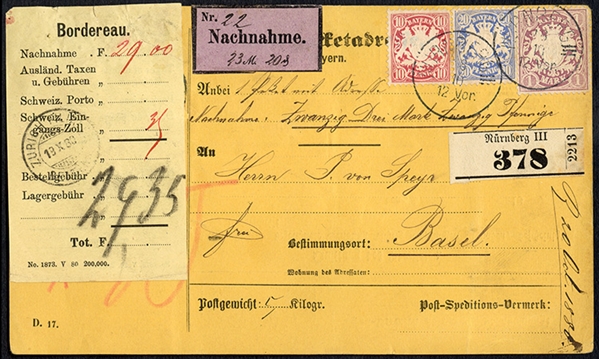 Bordereau.
Nachnahme . F. 29.00
Ausländ. Taxen
u. Gebühren . „
Schweiz. Porto „
Schweiz. Ein-
gangs-Zoll „ 35
Bestellgebühr „
Lagergebühr „
29 35
Tot. F.
No. 1873. V 80 200,000.
D. 17.
ZÜRICH
Nr. 22
Nachnahme.
23 M. 20 ₰
ketadre
yern.
10 BAYERN 10
20 20
12 Vor.
1
Anbei 1 Paket mit Adresse
Nachnahme: Zwanzig Drei Mark Zwanzig Pfennige
An
Herrn P. von Speyr
Nürnberg III
378
2213
frei
Bestimmungsort: Basel.
Wohnung des Adressaten:
Postgewicht: 5 Kilogr.
Post-Speditions-Vermerk: